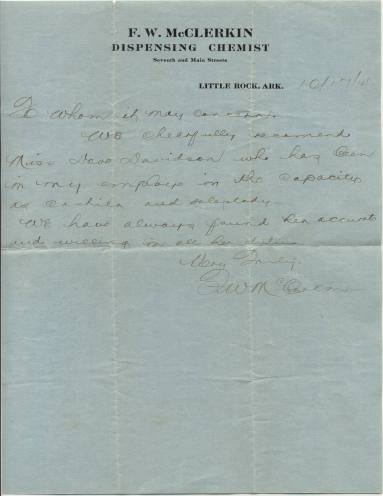 F. W. McCLERKIN
DISPENSING CHEMIST
Seventh and Main Streets
LITTLE ROCK, ARK.
To Whom it may concern.
We cheerfully recomend
Miss Davidson who has been
in my employe in the capacity
as cashier and saleslady
We have always found her accurate
and willing in all her duties
Very Truly,
F W McClerkin